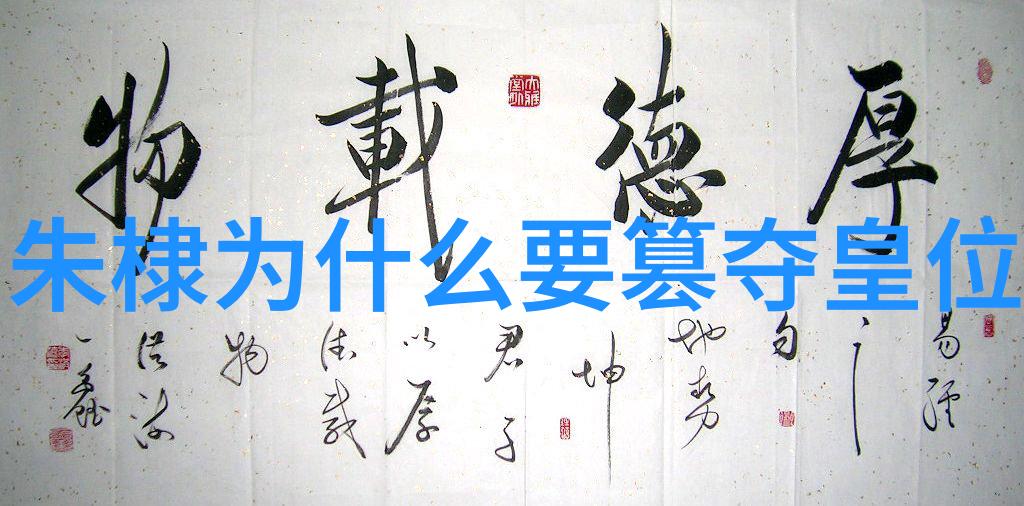 厚德載物
朱棣为什么要篡夺皇位
易經
之
句
地勢
坤
君子
以厚
德載
物